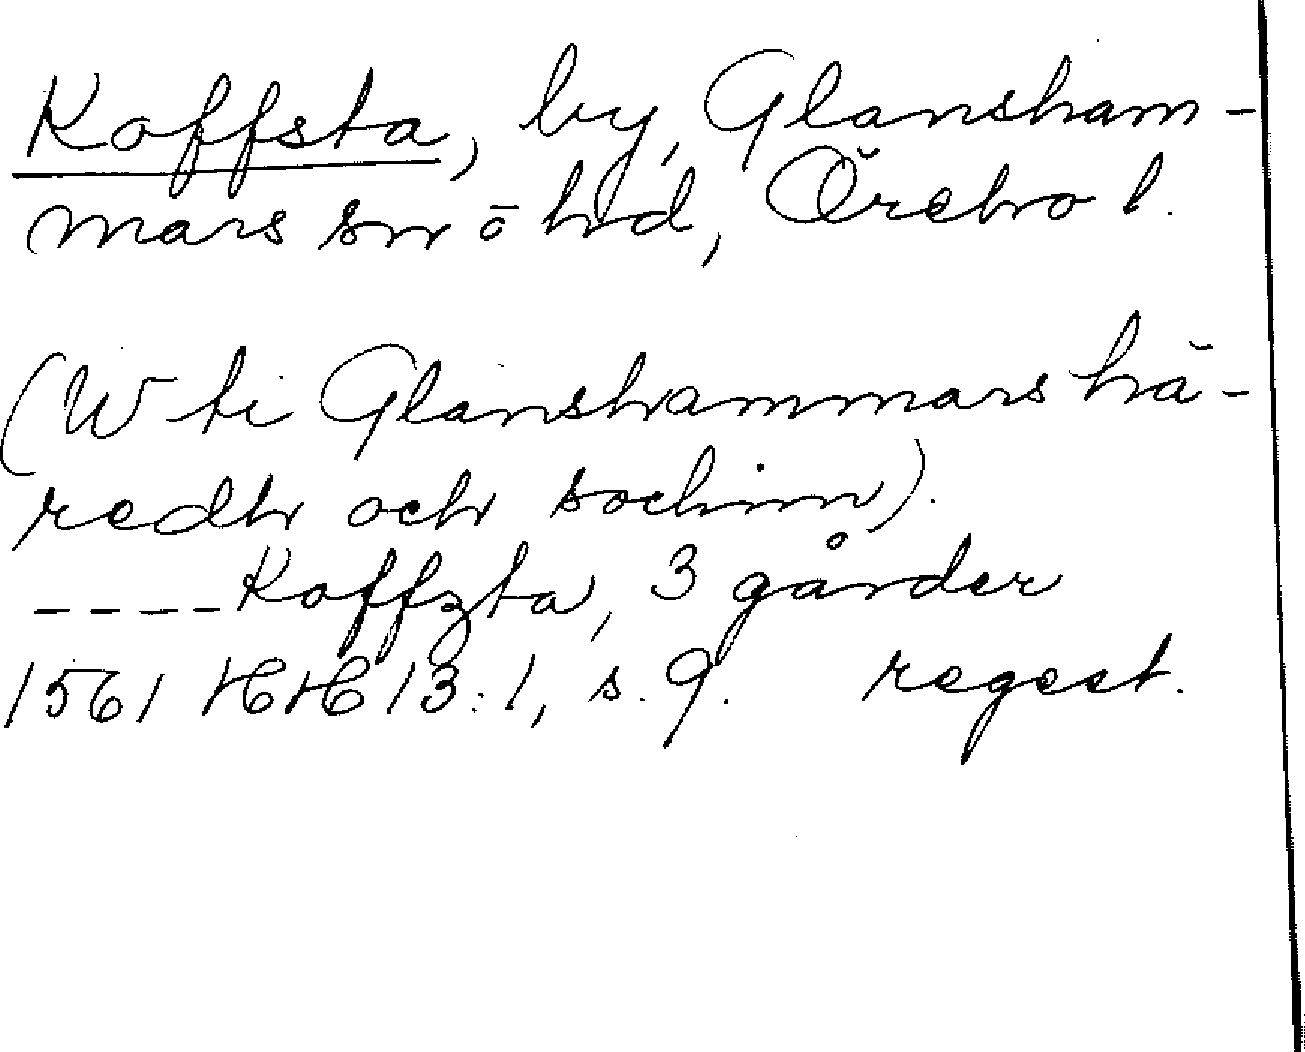 Koffsta, by, Glansham-
mars sn o hd, Örebro l.
(W ti Glanshammars hä-
redh och sochnn).
----Koffzta, 3 gårder
1561 HH 13:1, s. 9. regest.